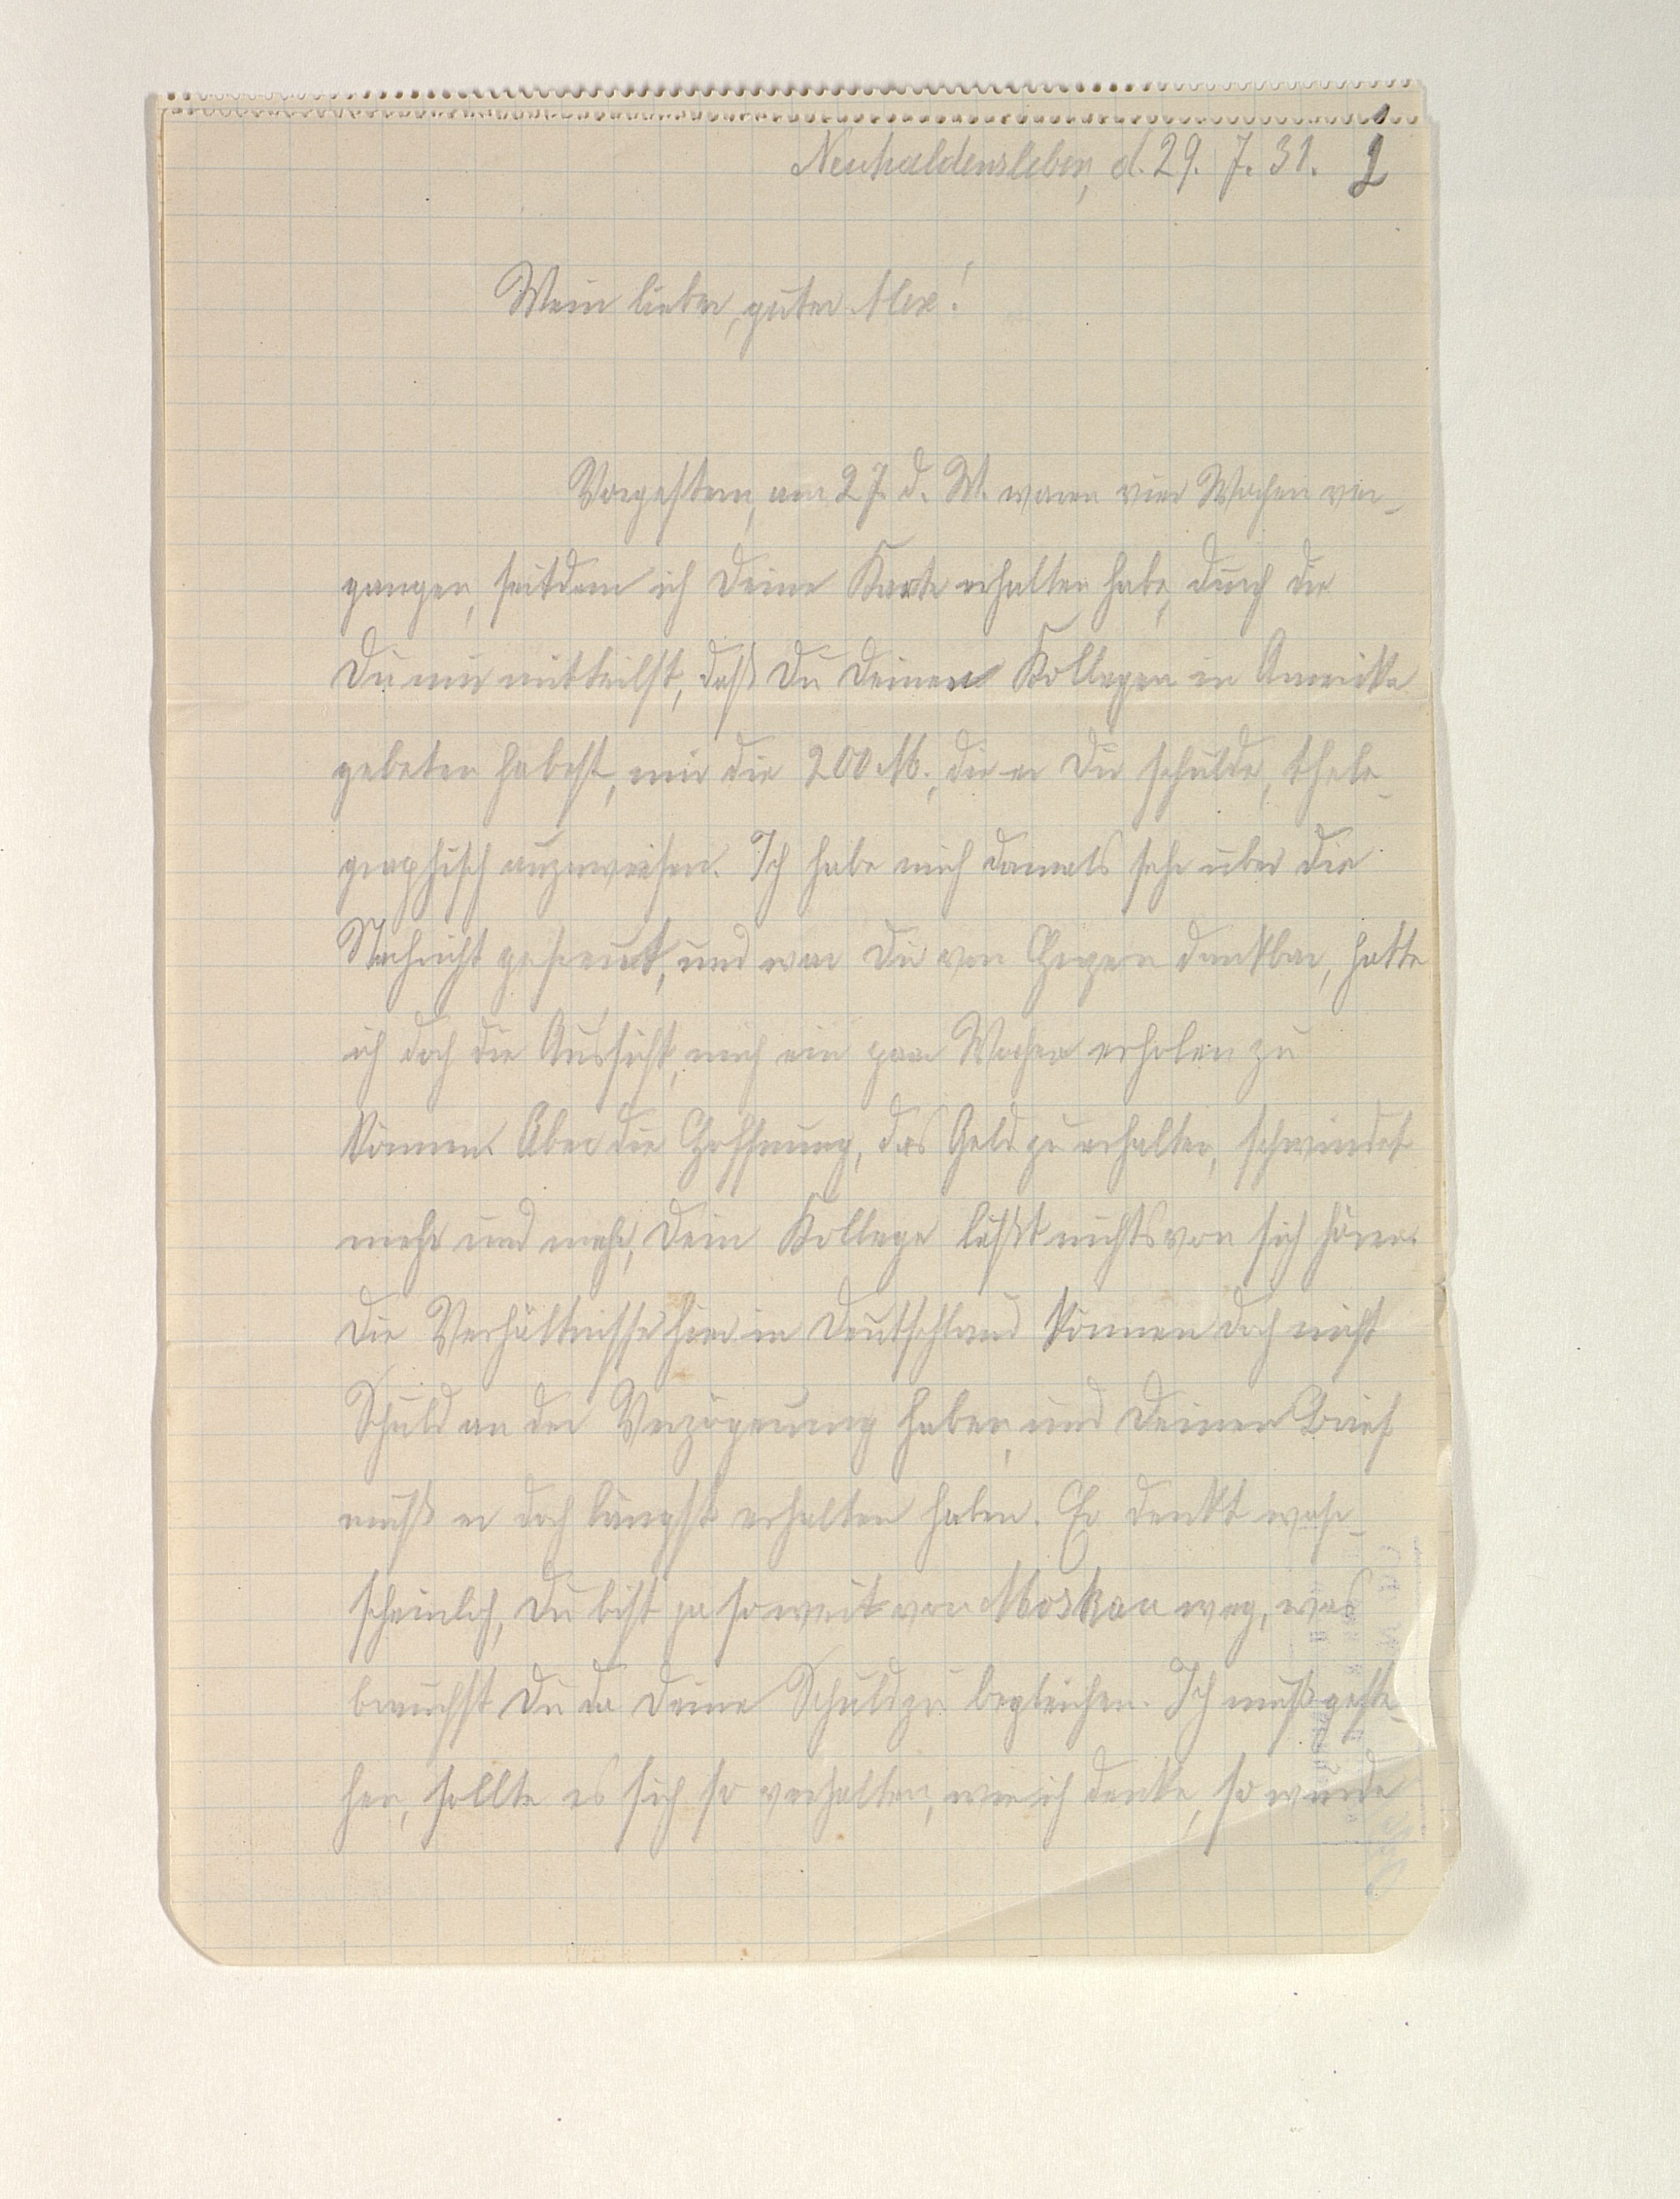 Neuhaldensleben, d. 29. 7. 31.
Mein lieber, guter Alex!
Vorgestern, am 27. d. M. waren vier Wochen ver-
gangen, seitdem ich Deine Karte erhalten habe, durch die
Du mir mitteilst, daß Du Deinen Kollegen in Amerika
gebeten habest, mir die 200 M., die er Dir schulde, thele-
graphisch anzuweisen. Ich habe mich damals sehr über die
Nachricht gefreut, und war Dir von Herzen dankbar, hatte
ich doch die Aussicht, mich ein paar Wochen erholen zu
können. Aber die Hoffnung, das Geld zu erhalten, schwindet
mehr und mehr, Dein Kollege läßt nichts von sich hören.
Die Verhältnisse hier in Deutschland können doch nicht
Schuld an der Verzögerung haben, und Deinen Brief
muß er doch längst erhalten haben. Er denkt wahr-
scheinlich, Du bist ja so weit von Moskau weg, was
brauchst Du da Deine Schuld zu begleichen. Ich muß geste-
hen, sollte es sich so verhalten, wie ich denke, so würde